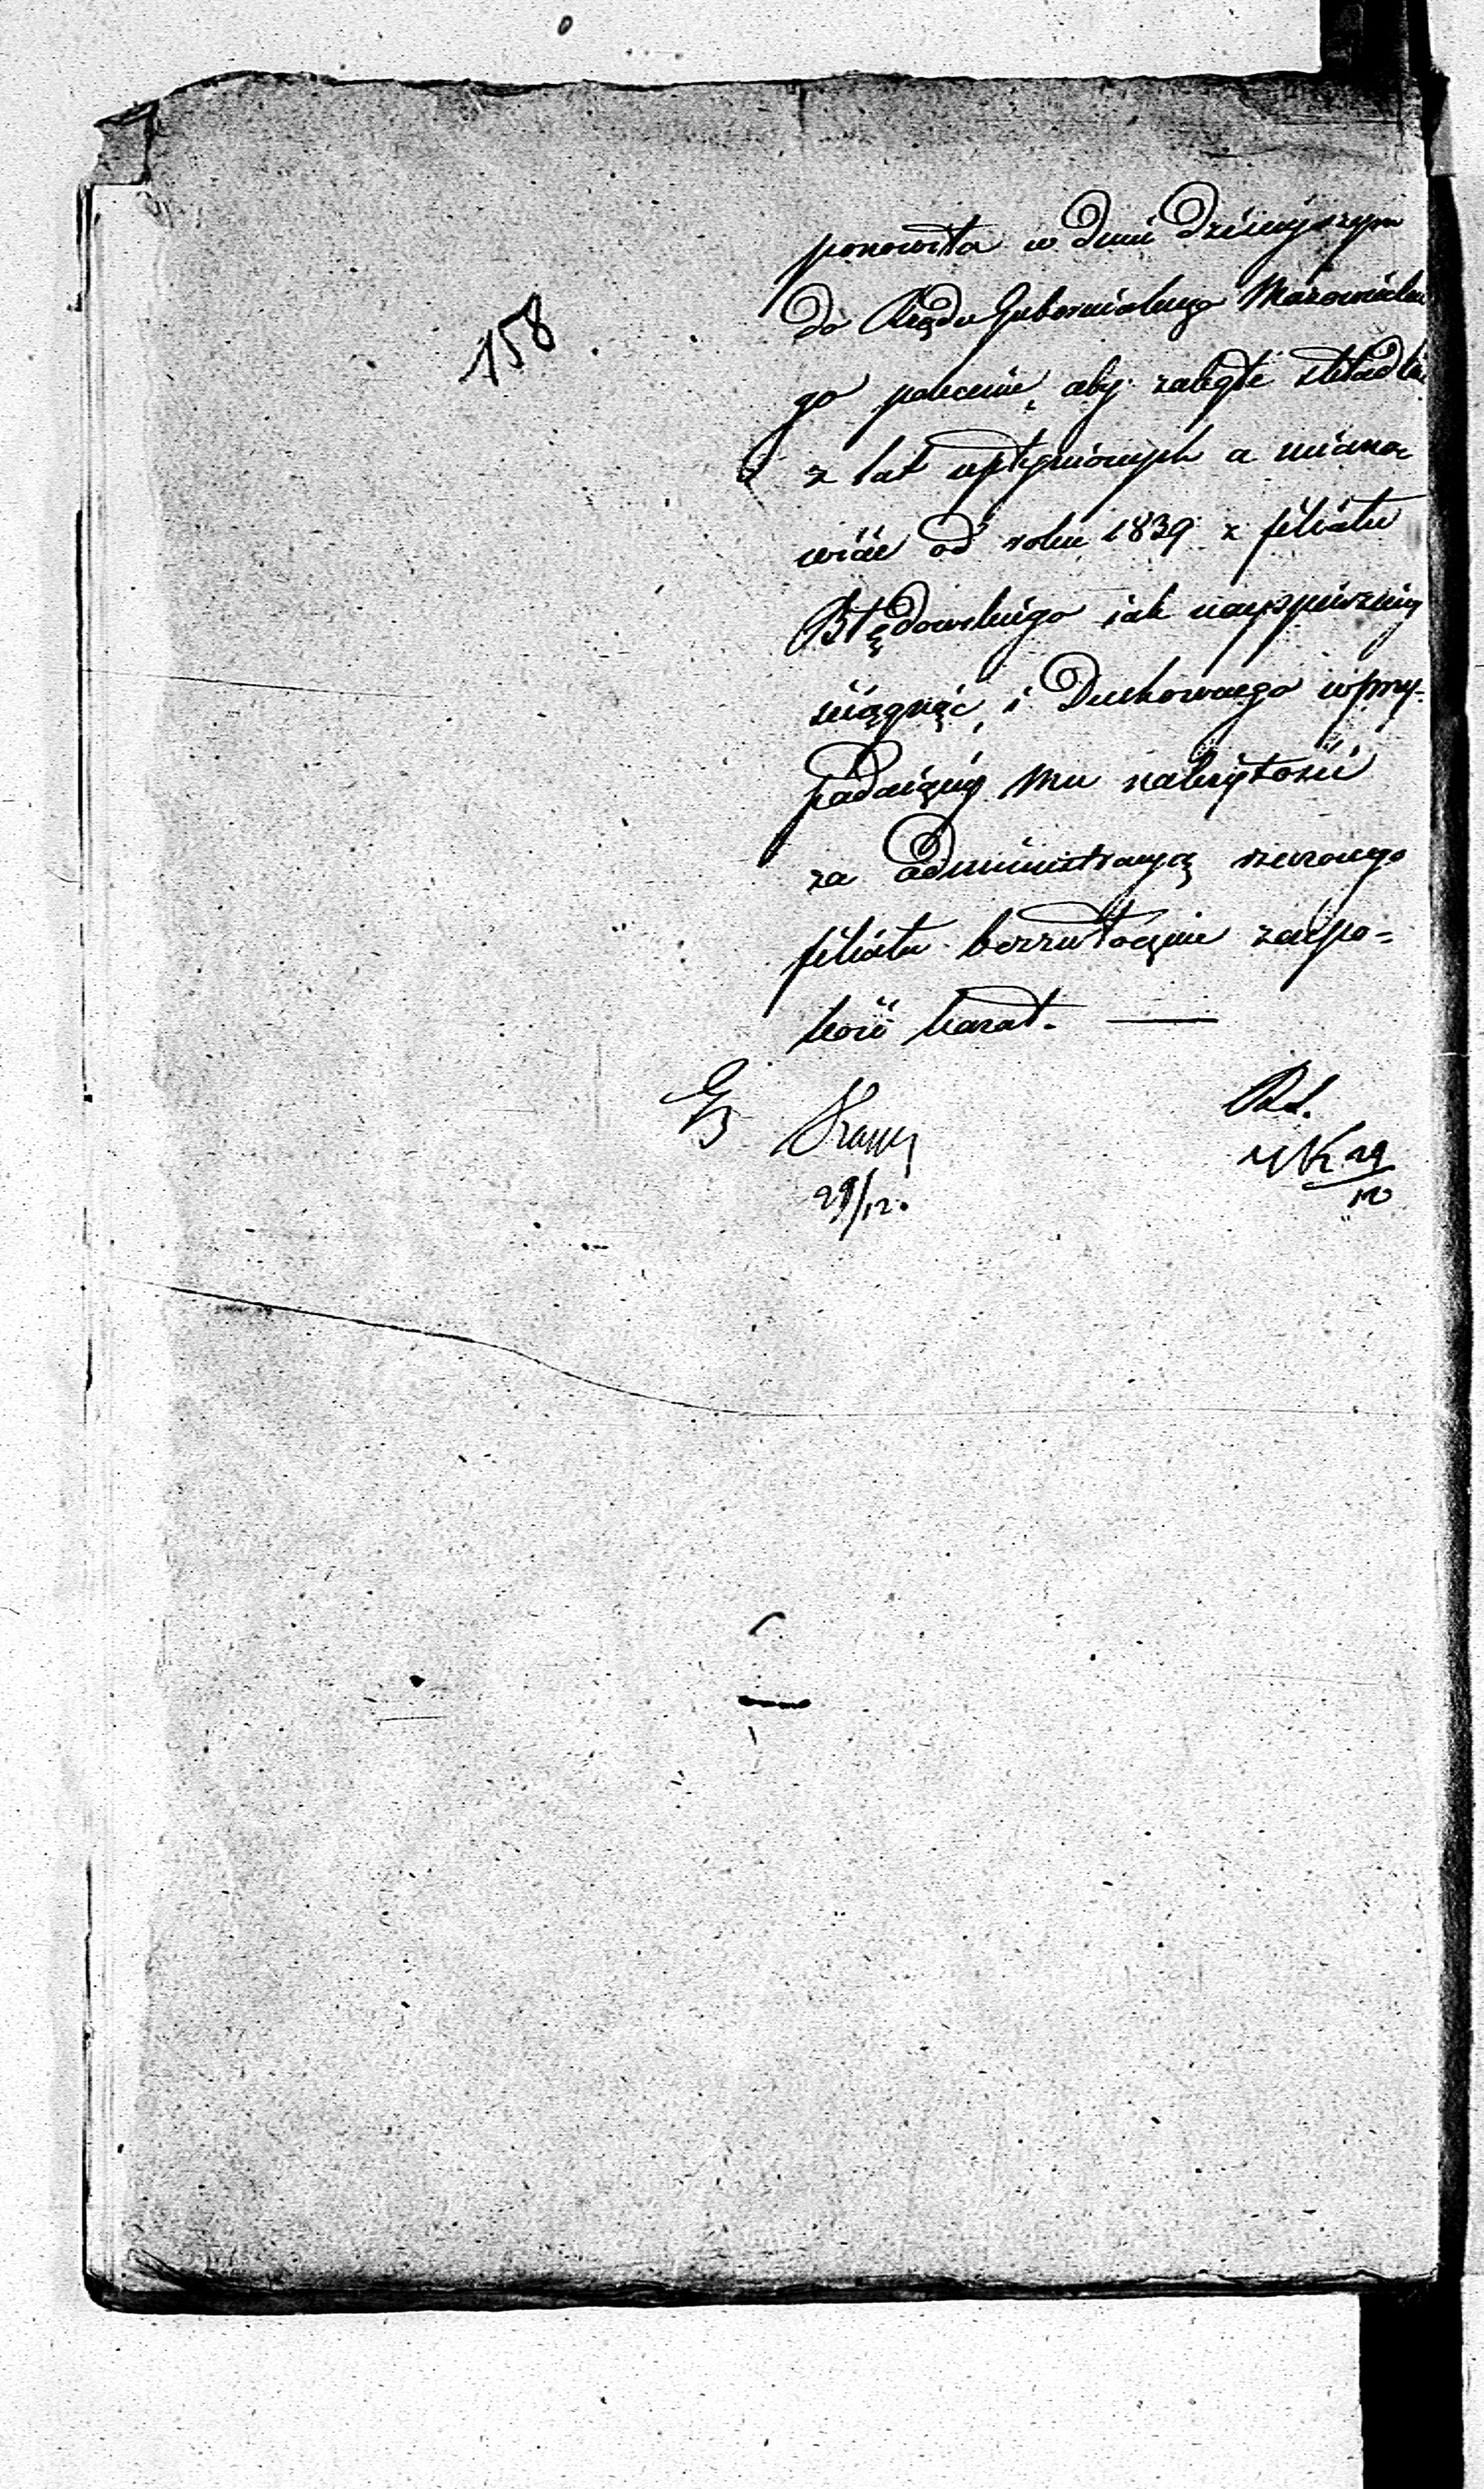 158
ponowiła w dniu dzisieyszym
do Rządu Gubernialnego Mazowieckie
go polecenie, aby zaległe składki
z lat upłynionych a miano
wicie od roku 1839 z filiału
Błędowskiego iak nayspieszniey
ściągnąć, i Duchownego w przy-
padaiącey mu należytości
za administracyą rzeczonego
filiału bezzwłocznie zaspo=
koić kazał. —
29/12.
29
12